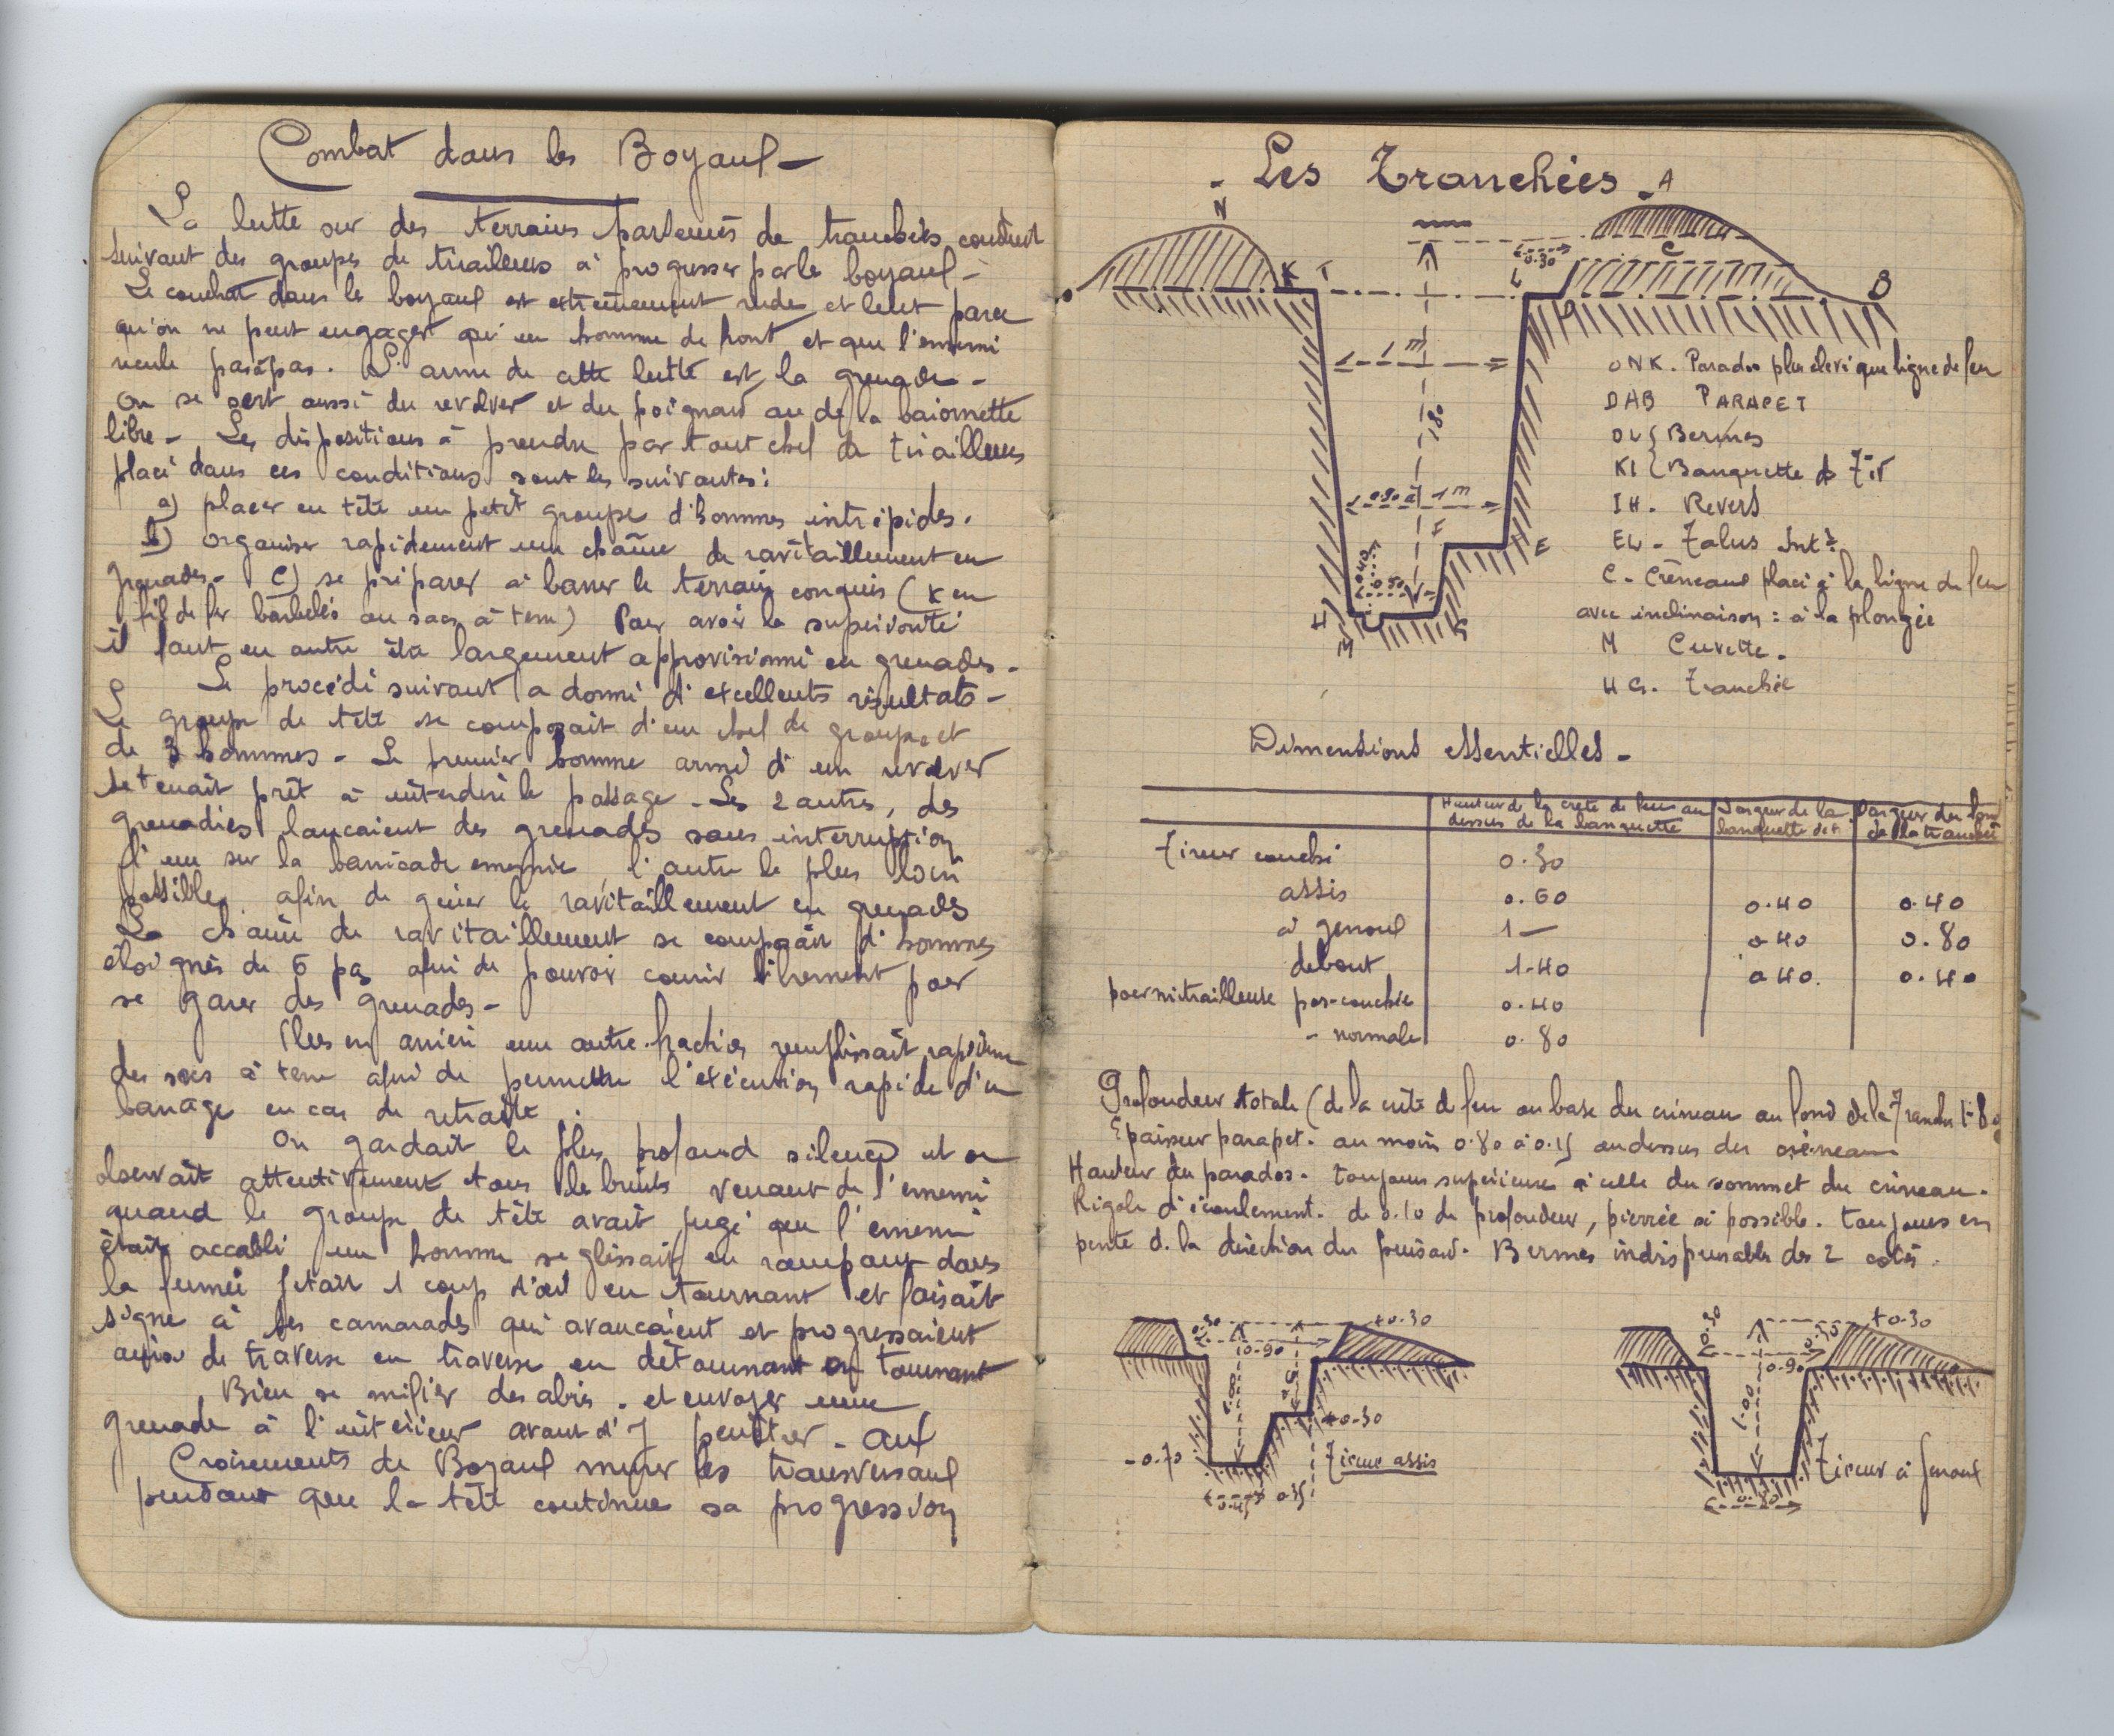 Combat dans les Boyaux
La lutte sur des terrains parsemés de tranchées conduit
suivant des groupes de tirailleurs à progresser par le boyaux -
Le combat dans le boyaux est extrêmement rude et lent parce
qu'on ne peut engager qu'un homme de front et que l'ennemi
recule pas à pas. L'arme de cette lutte est la grenade -
On se sert aussi du revolver et du poignard ou de la baionnette
libre - Les dispositions à prendre par tout chef de tirailleurs
placé dans ces conditions sont les suivantes :
a) placer en tête un petit groupe d'hommes intrépides.
b) organiser rapidement une chaîne de ravitaillement en
grenades - c) se préparer à barrer le terrain conquis (x en
fil de fer barbelés ou sacs à terre) Pour avoir la supériorité
il faut en outre être largement approvisionné en grenades -
Le procédé suivant a donné d'excellents résultats -
Le groupe de tête se composait d'un chef de groupe et
de 3 hommes - Le premier homme armé d'un revolver
se tenait prêt à interdire le passage - Les 2 autres, des
grenadiers lançaient des grenades sans interruption
l'un sur la barricade ennemie, l'autre le plus loin
possible, afin de gêner le ravitaillement en grenades
La chaîne de ravitaillement se composait d'hommes
éloignés de 5 pas afin de pouvoir courir librement pour
se garer des grenades -
Plus en arrière une autre fraction remplissait rapidement
des sacs à terre afin de permettre l'exécution rapide d'un
barrage en cas de retraite.
On gardait le plus profond silence et on
observait attentivement tous les bruits venant de l'ennemi
quand le groupe de tête avait jugé que l'ennemi
était accablé un homme se glissait en rampant dans
la fumée jetait 1 coup d'œil en tournant et faisait
signe à ses camarades qui avancaient et progressaient
ainsi de traverse en traverse en détournant en tournant
Bien se méfier des abris. et envoyer une
grenade à l'intérieur avant d'y pénétrer - aux
Croisements de Boyaux murer les transversaux
pendant que la tête continue sa progression
- Les Tranchées -
A
N
0.30
C
K I
L
D
B
1m
1.80
0.80 à 1m
F
E
0.40
0.50
H
M
G
ONK. Parados plus élevé que ligne de feu
DAB PARAPET
DL { Bermes
KI { Banquette de Tir
IH. Revers
EL - Talus Intr
C - Créneaux placé à la ligne de feu
avec inclinaison : à la plongée
M Cuvette.
HG. Tranchée
Dimensions essentielles -
Hauteur de la crete de feu au dessus de la banquette
Largeur de la banquette de t.
Largeur du fond de la tranchée
Tireur couché 0.30
assis 0.60 0.40 0.40
à genoux 1 — 0 40 0.80
debout 1.40 0 40. 0.40
pour mitrailleuse pos-couchée 0.40
- normale 0.80
Profondeur totale (de la crête de feu ou base du créneau au fond de la Tranchée 1.80
Epaisseur parapet. au moins 0.80 à 0.15 au dessus du créneau
Hauteur du parados. toujours supérieure à celle du sommet du créneau.
Rigole d'écoulement. de 0.10 de profondeur, pierrée si possible. toujours en
pente d. la direction du puisard. Bermes indispensables des 2 cotés.
0.30
0.90
+0.30
1.00
+0.30
-0.70
Tireur assis
0.45
0.35
0.30
0.30
+0.30
0.90
1.00
Tireur à genoux
0.80